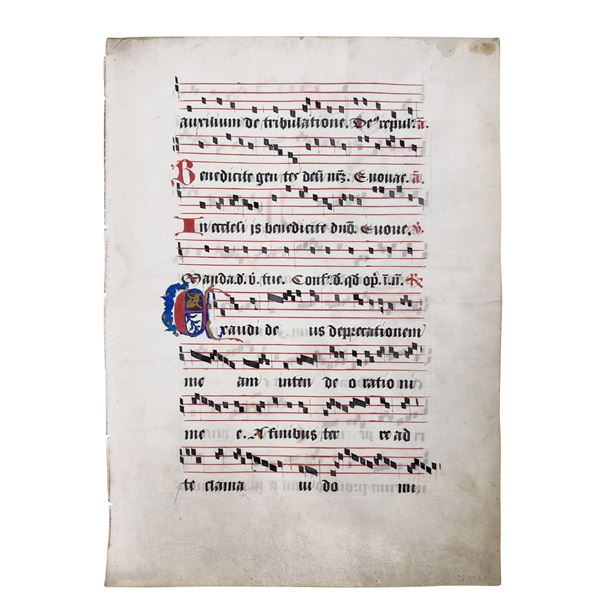 auxilium de tribulatione. De⁹ repul: a.
Benedicite gen tes deū nr̄ʒ. Euouae. a.
In ecclesi js benedicite dn̄o. Euoue. v̄.
Manda. d. v̄. tue. Confr̄. d. qd̄ op̄. ī. n̄. R
Exaudi de us deprecationem
me am inten de o ratio ni
me e. A finibus ter re ad
te clama ui do mi